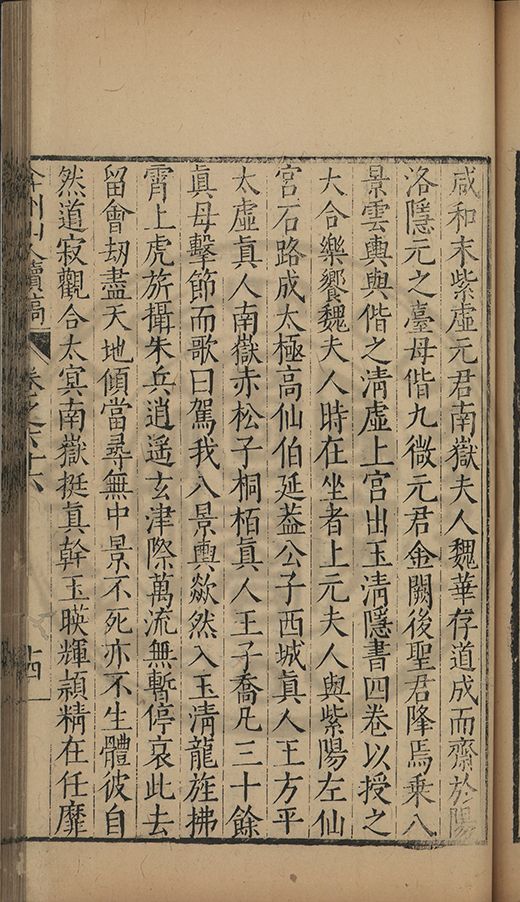 咸和末紫虛元君南嶽夫人魏華存道成而齋於陽
洛隱元之臺母偕九微元君金闕後聖君降焉乘八
景雲輿與偕之清虛上宮出玉清隱書四卷以授之
大合樂饗魏夫人時在坐者上元夫人與紫陽左仙
宮石路成太極高仙伯延葢公子西城眞人王方平
太虛眞人南嶽赤松子桐栢眞人王子喬凡三十餘
眞母擊節而歌曰駕我八景輿歘然入玉清龍旌拂
霄上虎旂攝朱兵逍遙玄津際萬流無暫停哀此去
留會刼盡天地傾當尋無中景不死亦不生體彼自
然道寂觀合太㝠南嶽挺眞幹玉暎輝頴精在任靡
續稿 卷之六十六 十四